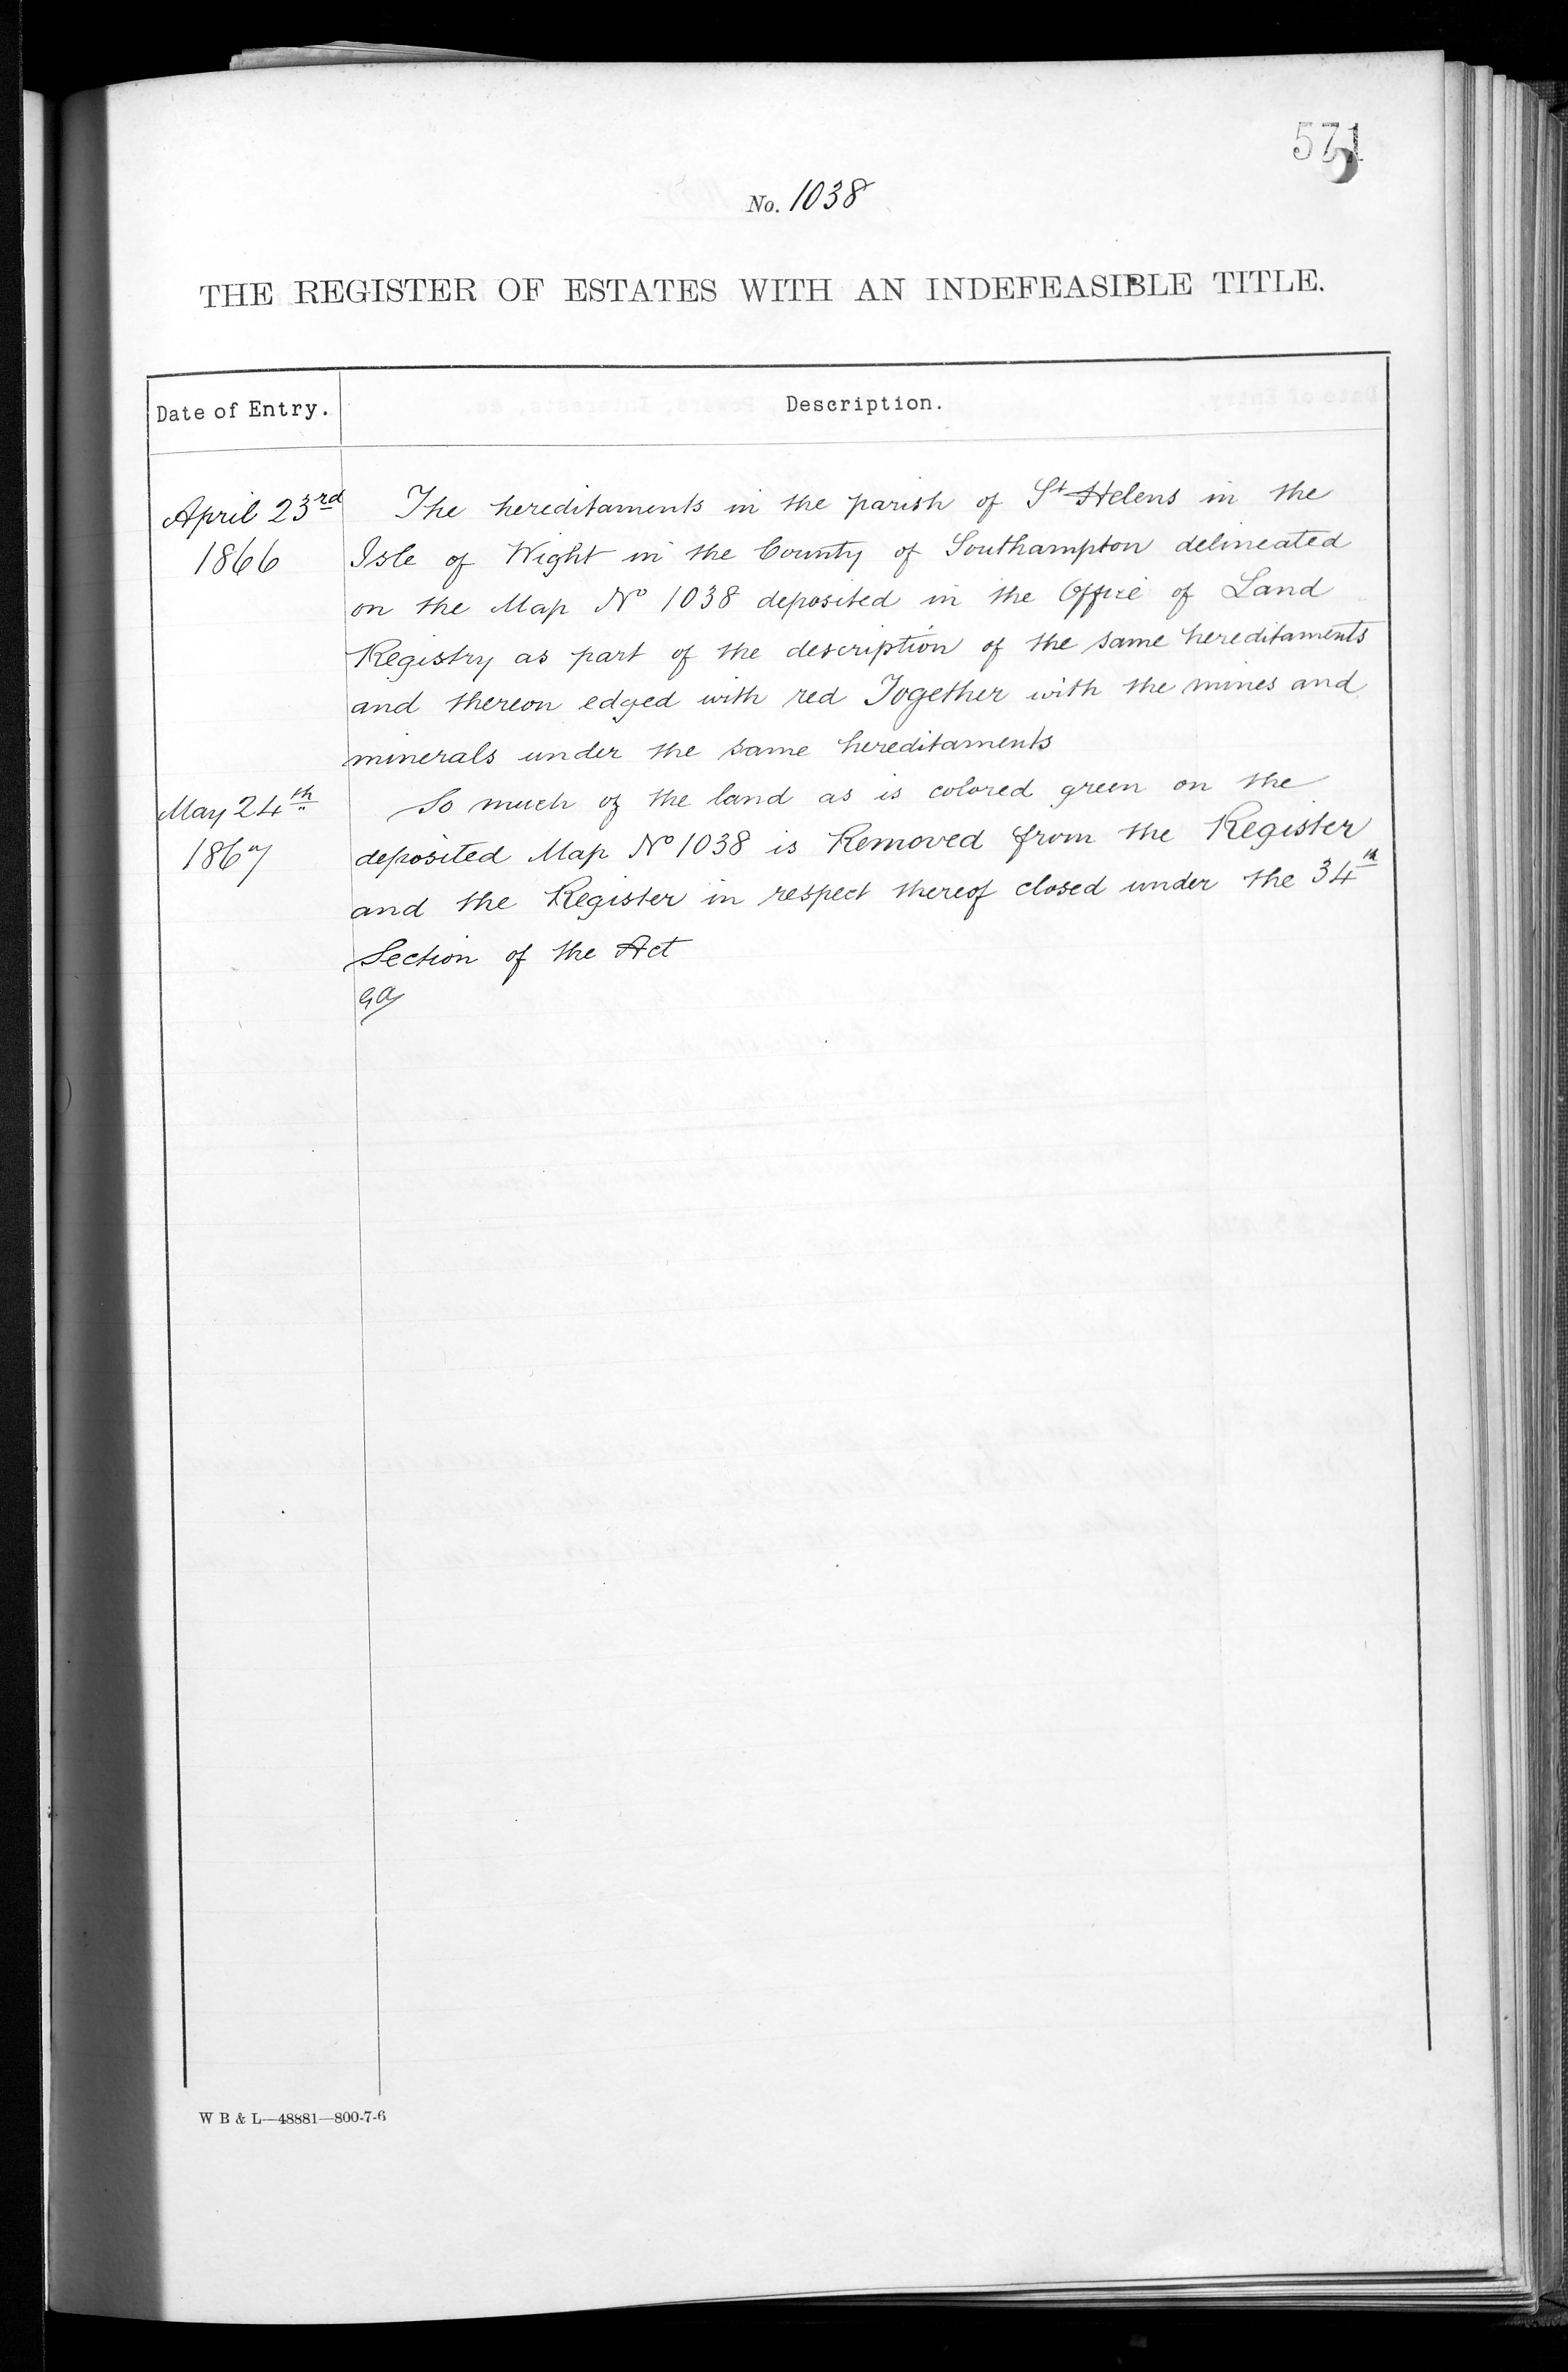 571
No. 1038
THE REGISTER OF ESTATES WITH AN INDEFEASIBLE TITLE.
Date of Entry. Description.
April 23rd The hereditaments in the parish of St Helens in the
1866 Isle of Wight in the County of Southampton delineated
on the Map No 1038 deposited in the Office of Land
Registry as part of the description of the same hereditaments
and thereon edged with red Together with the mines and
minerals under the same hereditaments
May 24th So much of the land as is colored green on the
1867 deposited Map No 1038 is Removed from the Register
and the Register in respect thereof closed under the 34th
Section of the Act
W B & L—48881—800-7-6